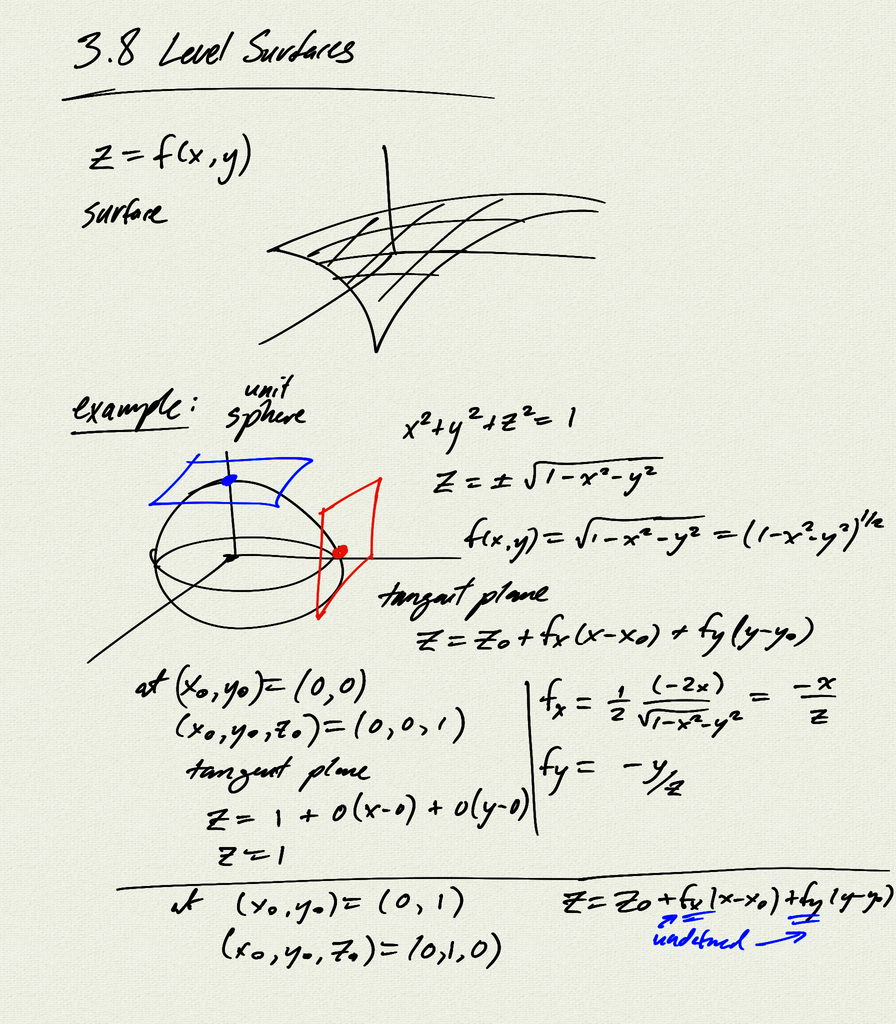 3.8 Level Surfaces
z = f(x, y)
surface
example: unit sphere
x²+y²+z² = 1
z = ± √(1-x²-y²)
f(x,y) = √(1-x²-y²) = (1-x²-y²)^1/2
tangent plane
z = z₀ + fx(x-x₀) + fy(y-y₀)
at (x₀,y₀) = (0,0)
(x₀,y₀,z₀) = (0,0,1)
tangent plane
z = 1 + 0(x-0) + 0(y-0)
z = 1
fx = 1/2 (-2x)/√(1-x²-y²) = -x/z
fy = -y/z
at (x₀,y₀) = (0,1)
(x₀,y₀,z₀) = (0,1,0)
z = z₀ + fx(x-x₀) + fy(y-y₀)
undefined